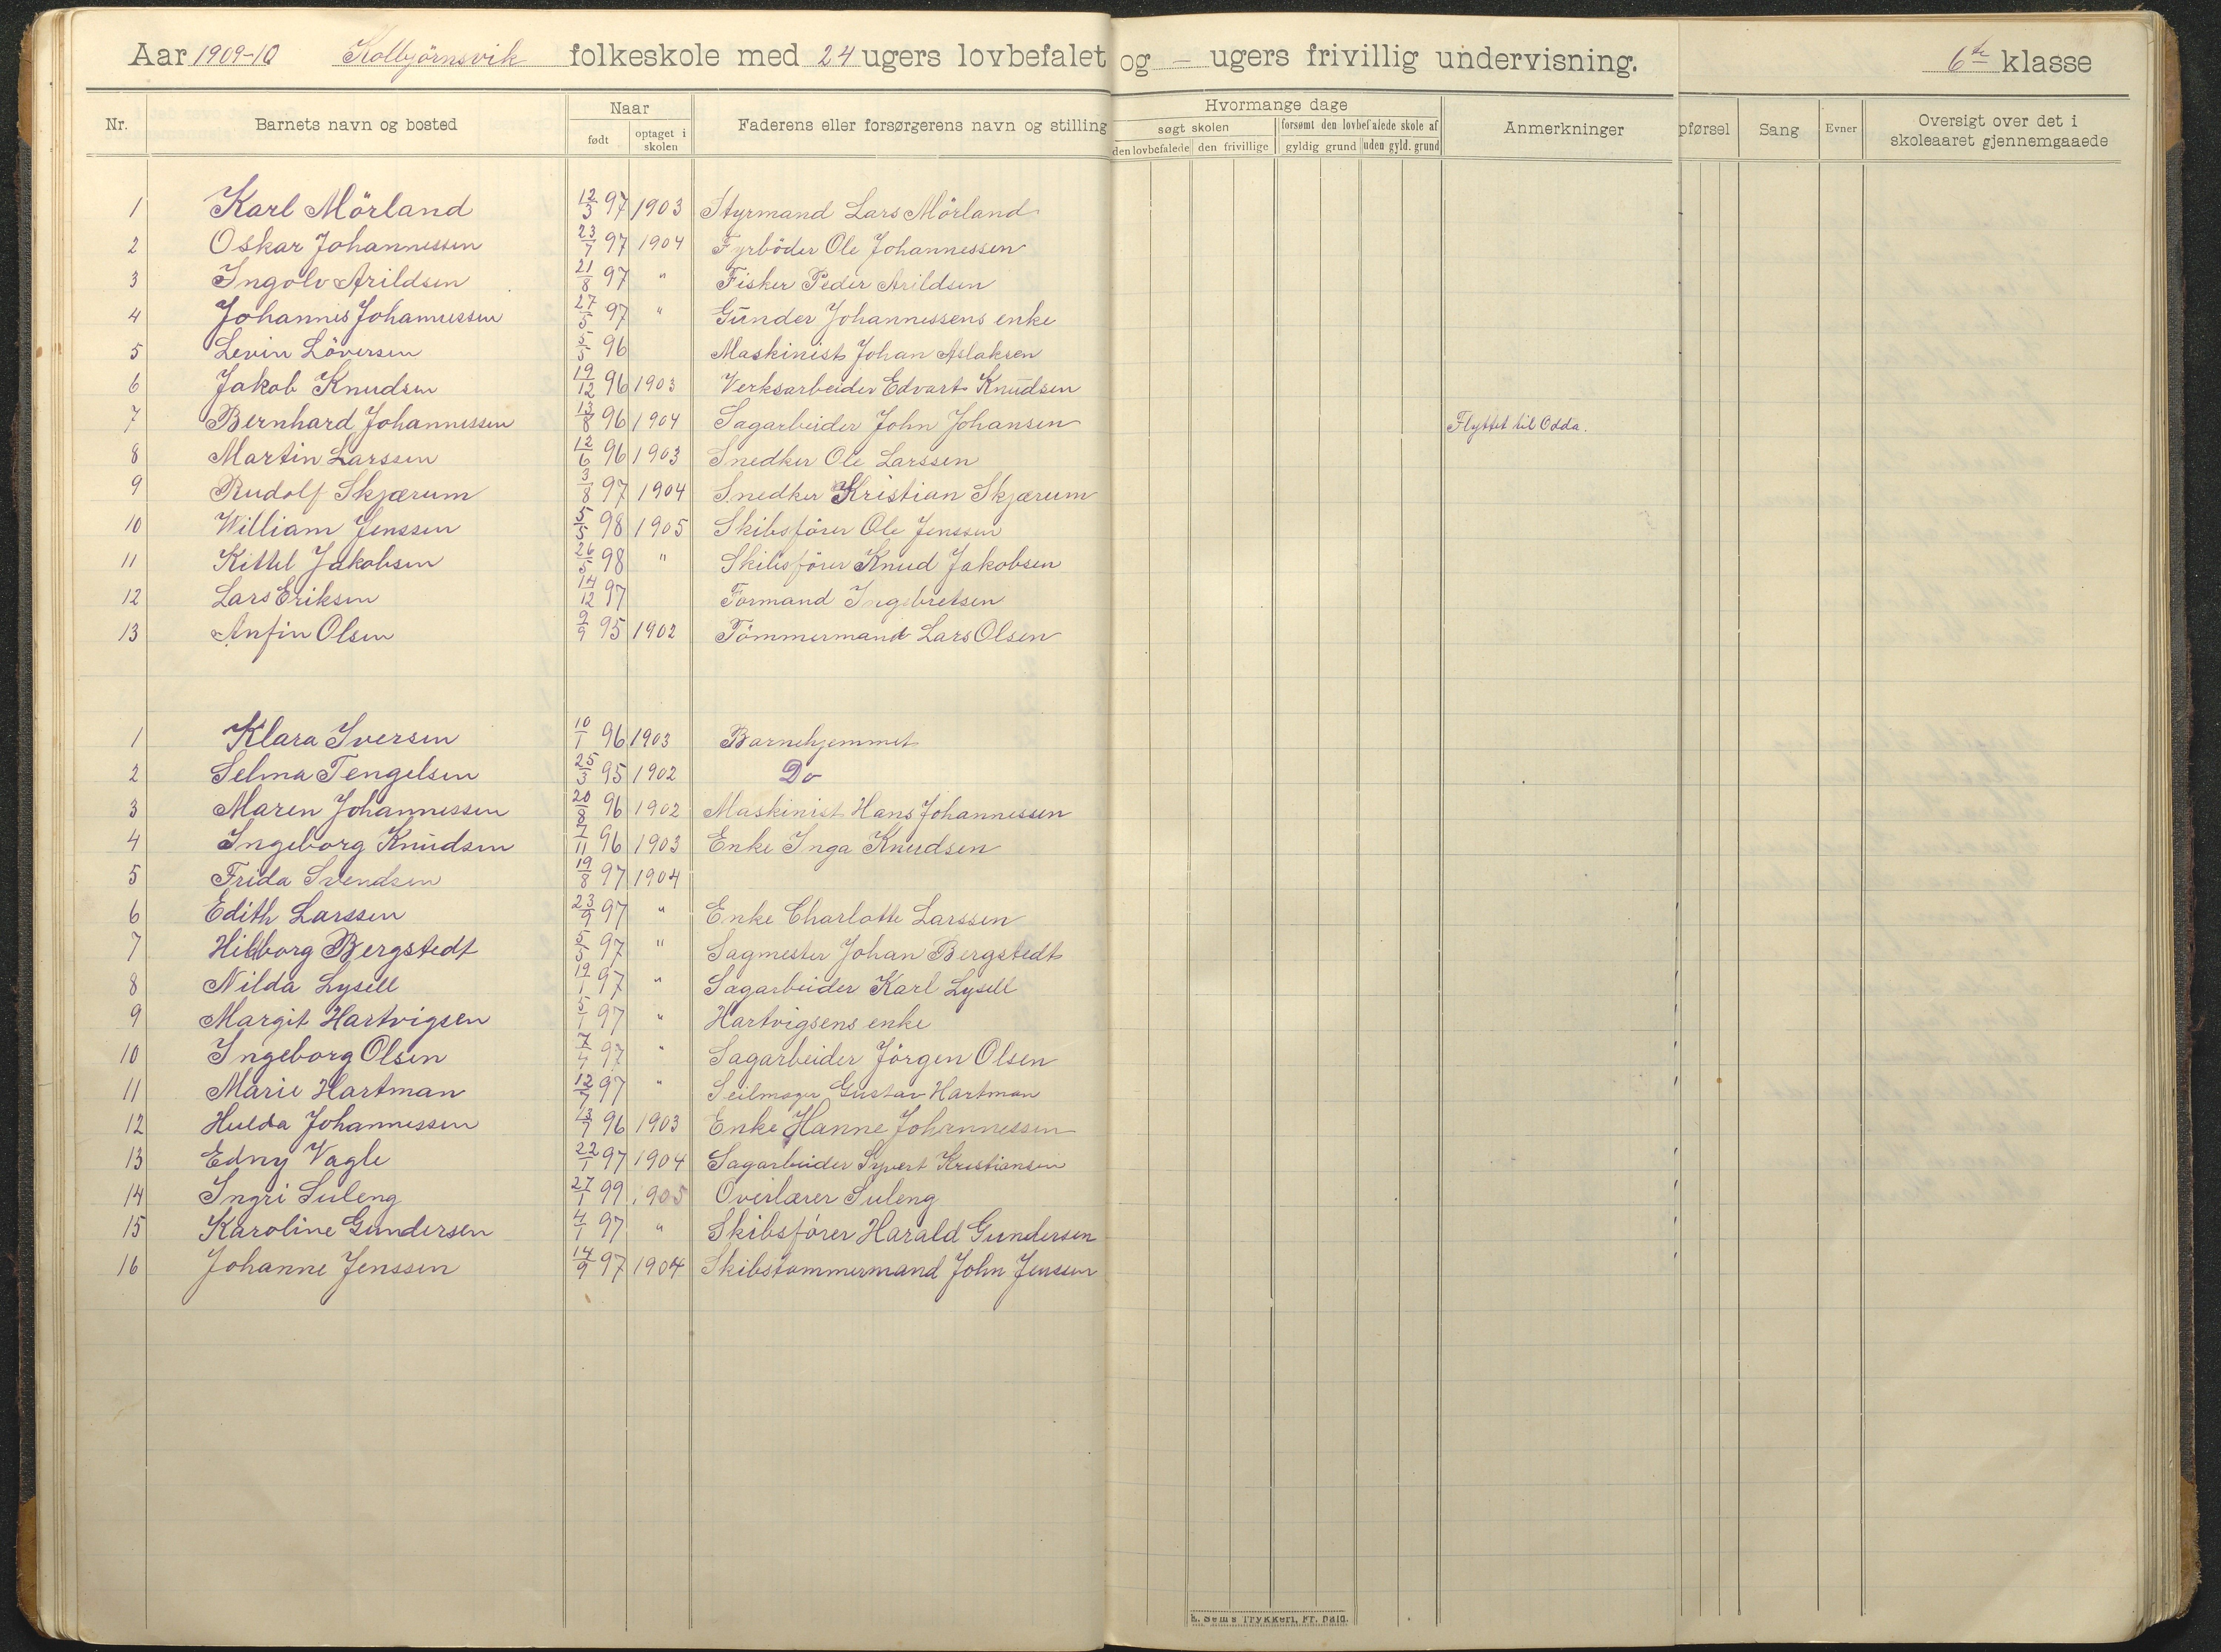 Aar 1909-10 Kolbjörnsvik folkeskole med 24 ugers lovbefalet og – ugers frivillig undervisning. 6te klasse
Nr. Barnets navn og bosted Naar født optaget i skolen Faderens eller forsørgerens navn og stilling Hvormange dage søgt skolen den lovbefalede den frivillige forsømt den lovbefalede skole af gyldig grund uden gyld. grund Anmerkninger pførsel Sang Evner Oversigt over det i skoleaaret gjennemgaaede
1 Karl Mörland 12/3 97 1903 Styrmand Lars Mörland
2 Oskar Johannessen 23/7 97 1904 Fyrböder Ole Johannessen
3 Ingolv Arildsen 21/8 97 " Fisker Peder Arildsen
4 Johannes Johannessen 27/5 97 " Gunder Johannessens enke
5 Levin Löversen 5/5 96 Maskinist Johan Aslaksen
6 Jakob Knudsen 19/12 96 1903 Verksarbeider Edvart Knudsen
7 Bernhard Johannessen 13/8 96 1904 Sagarbeider John Johansen Flyttet til Odda.
8 Martin Larssen 12/6 96 1903 Snedker Ole Larssen
9 Rudolf Skjærum 3/8 97 1904 Snedker Kristian Skjærum
10 William Jenssen 5/5 98 1905 Skibsfører Ole Jenssen
11 Kittel Jakobsen 26/5 98 " Skibsfører Knud Jakobsen
12 Lars Eriksen 14/12 97 Formand Ingebretsen
13 Anfin Olsen 9/9 95 1902 Tömmermand Lars Olsen
1 Klara Iversen 10/1 96 1903 Barnehjemmet
2 Selma Tengelsen 25/3 95 1902 Do
3 Maren Johannessen 20/8 96 1902 Maskinist Hans Johannessen
4 Ingeborg Knudsen 7/11 96 1903 Enke Inga Knudsen
5 Frida Svendsen 19/8 97 1904
6 Edith Larssen 23/9 97 " Enke Charlotte Larssen
7 Hilborg Bergstedt 5/5 97 " Sagmester Johan Bergstedt
8 Nilda Lysell 12/1 97 " Sagarbeider Karl Lysell
9 Margit Hartvigsen 5/1 97 " Hartvigsens enke
10 Ingeborg Olsen 7/4 97 " Sagarbeider Jörgen Olsen
11 Marie Hartman 12/7 97 " Seilmager Gustav Hartman
12 Hulda Johannessen 13/7 96 1903 Enke Hanne Johannessen
13 Edny Vagle 22/1 97 1904 Sagarbeider Syvert Kristiansen
14 Ingri Suleng 27/1 99 1905 Overlærer Suleng
15 Karoline Gundersen 4/1 97 " Skibsfører Harald Gundersen
16 Johanne Jenssen 14/9 97 1904 Skibstømmermand John Jenssen
E. Sems Trykkeri, Fr. hald.